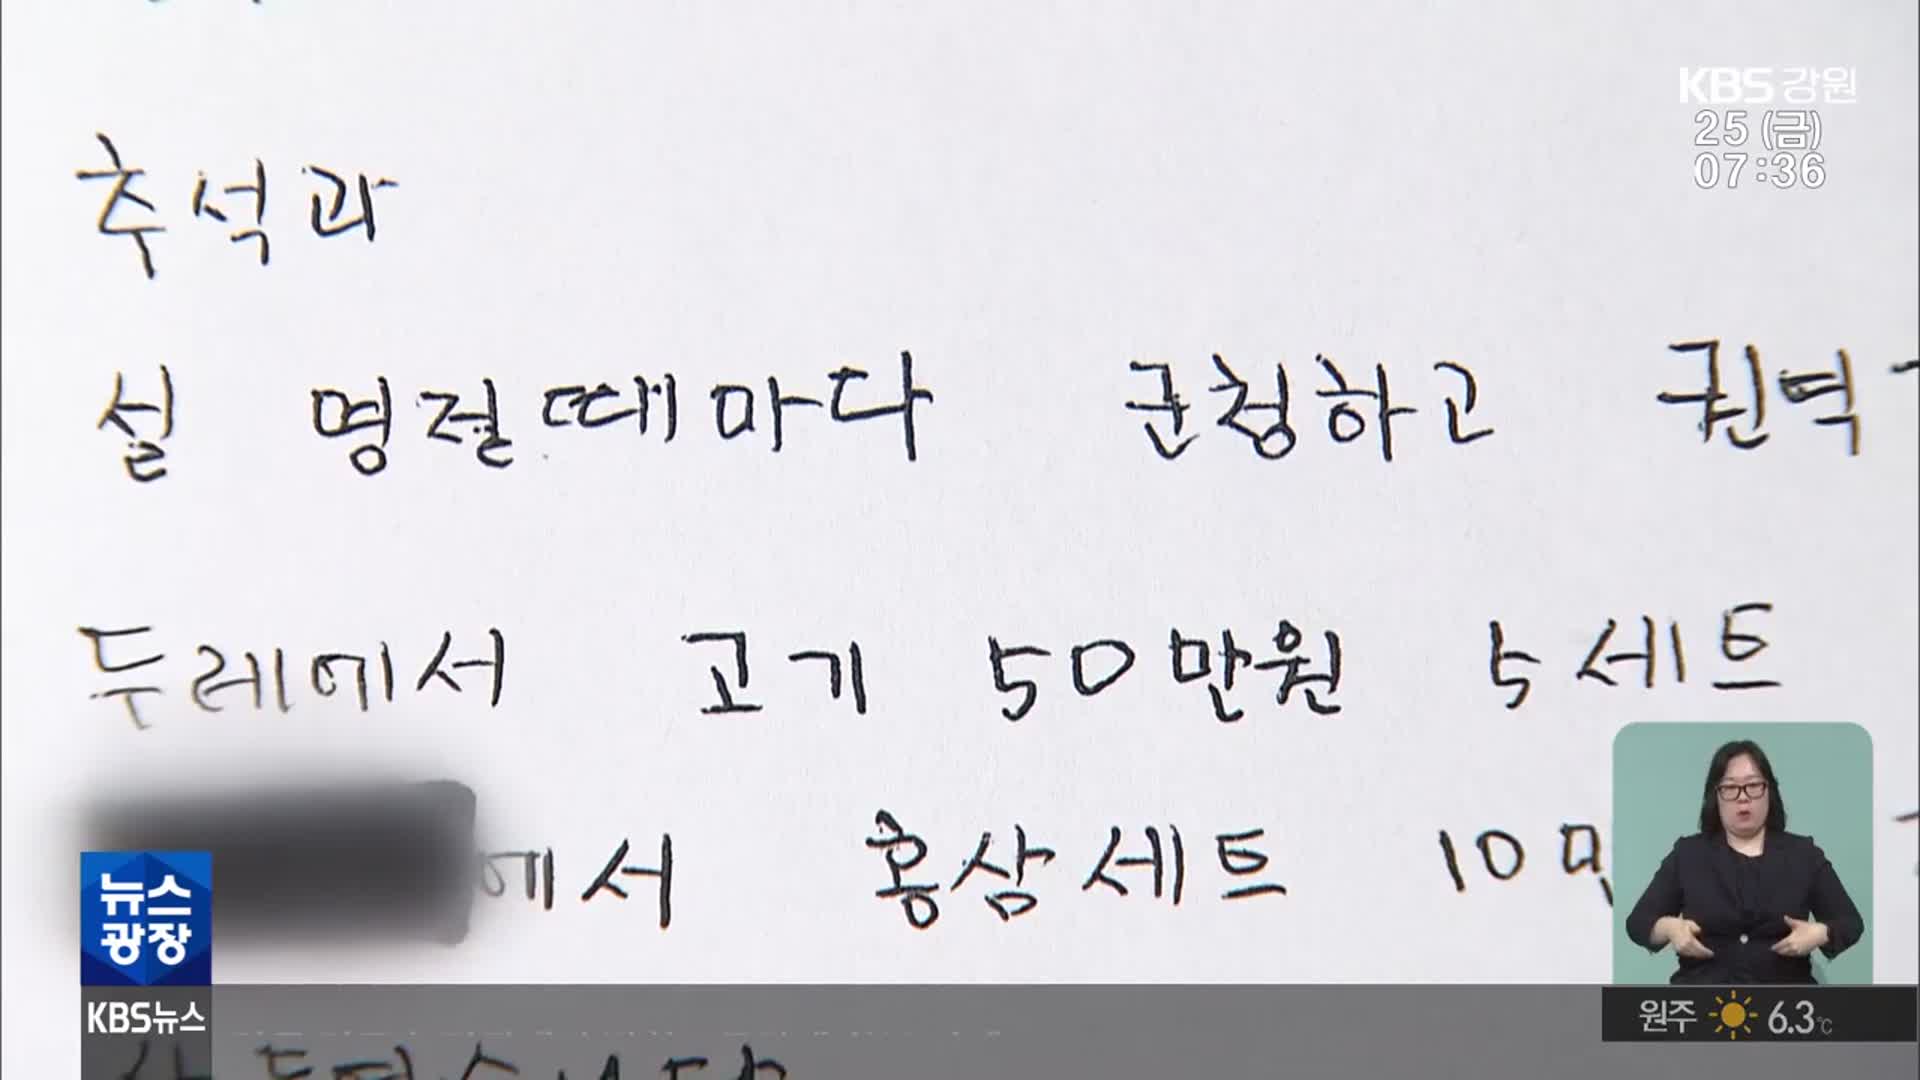 KBS 강원
25 (금)
07:36
추석과
설 명절때마다 군청하고 권력
두레에서 고기 50만원 5세트
에서 홍삼세트 10만
뉴스
광장
KBS뉴스
원주 6.3℃